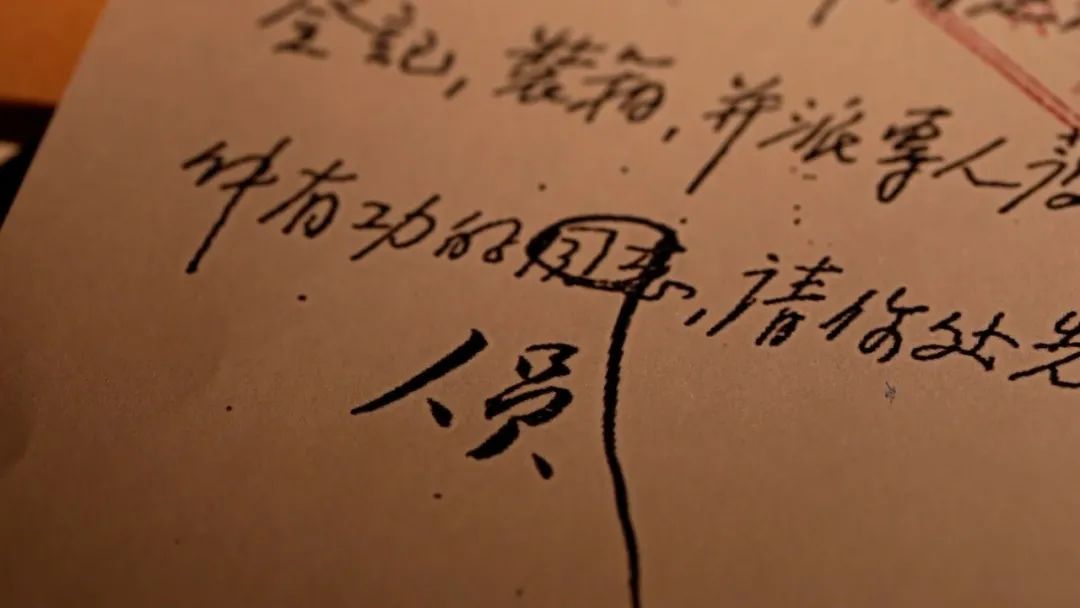 登记，装箱，并派专人
件有功的同志，请你处先
人员